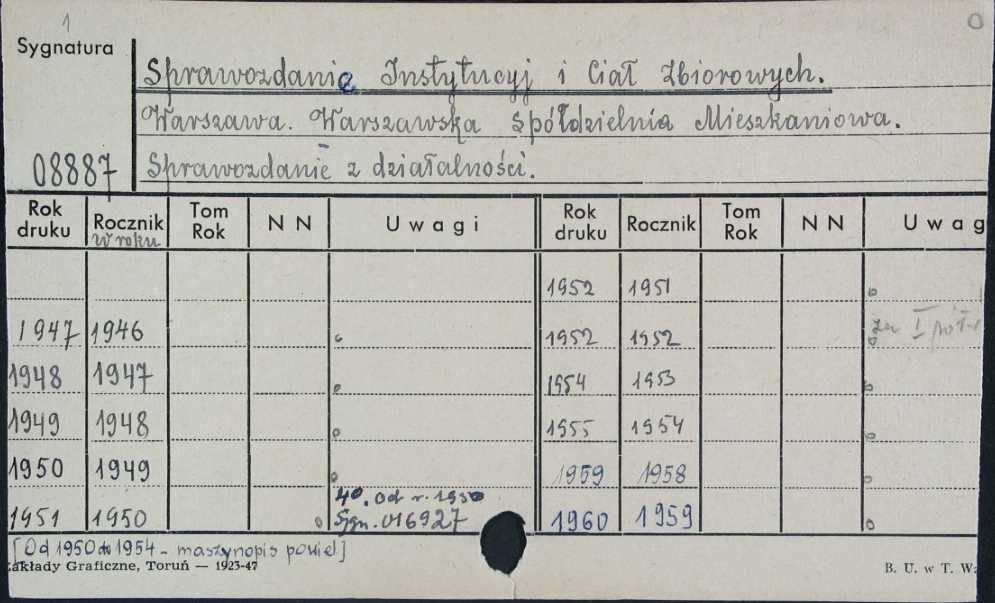 1
O
Sygnatura
Sprawozdanie Instytucyj i Ciał Zbiorowych.
Warszawa. Warszawska Spółdzielnia Mieszkaniowa.
08887 Sprawozdanie z działalności.
Rok druku Rocznik w roku Tom Rok N N Uwagi Rok druku Rocznik Tom Rok N N Uwag
1952 1951
1947 1946 1952 1952 za I
1948 1947 1954 1953
1949 1948 1955 1954
1950 1949 1959 1958
4º. Od r. 1950
1951 1950 Sygn. 016927 1960 1959
[Od 1950 do 1954 - maszynopis powiel]
akłady Graficzne, Toruń — 1923-47
B. U. w T. W